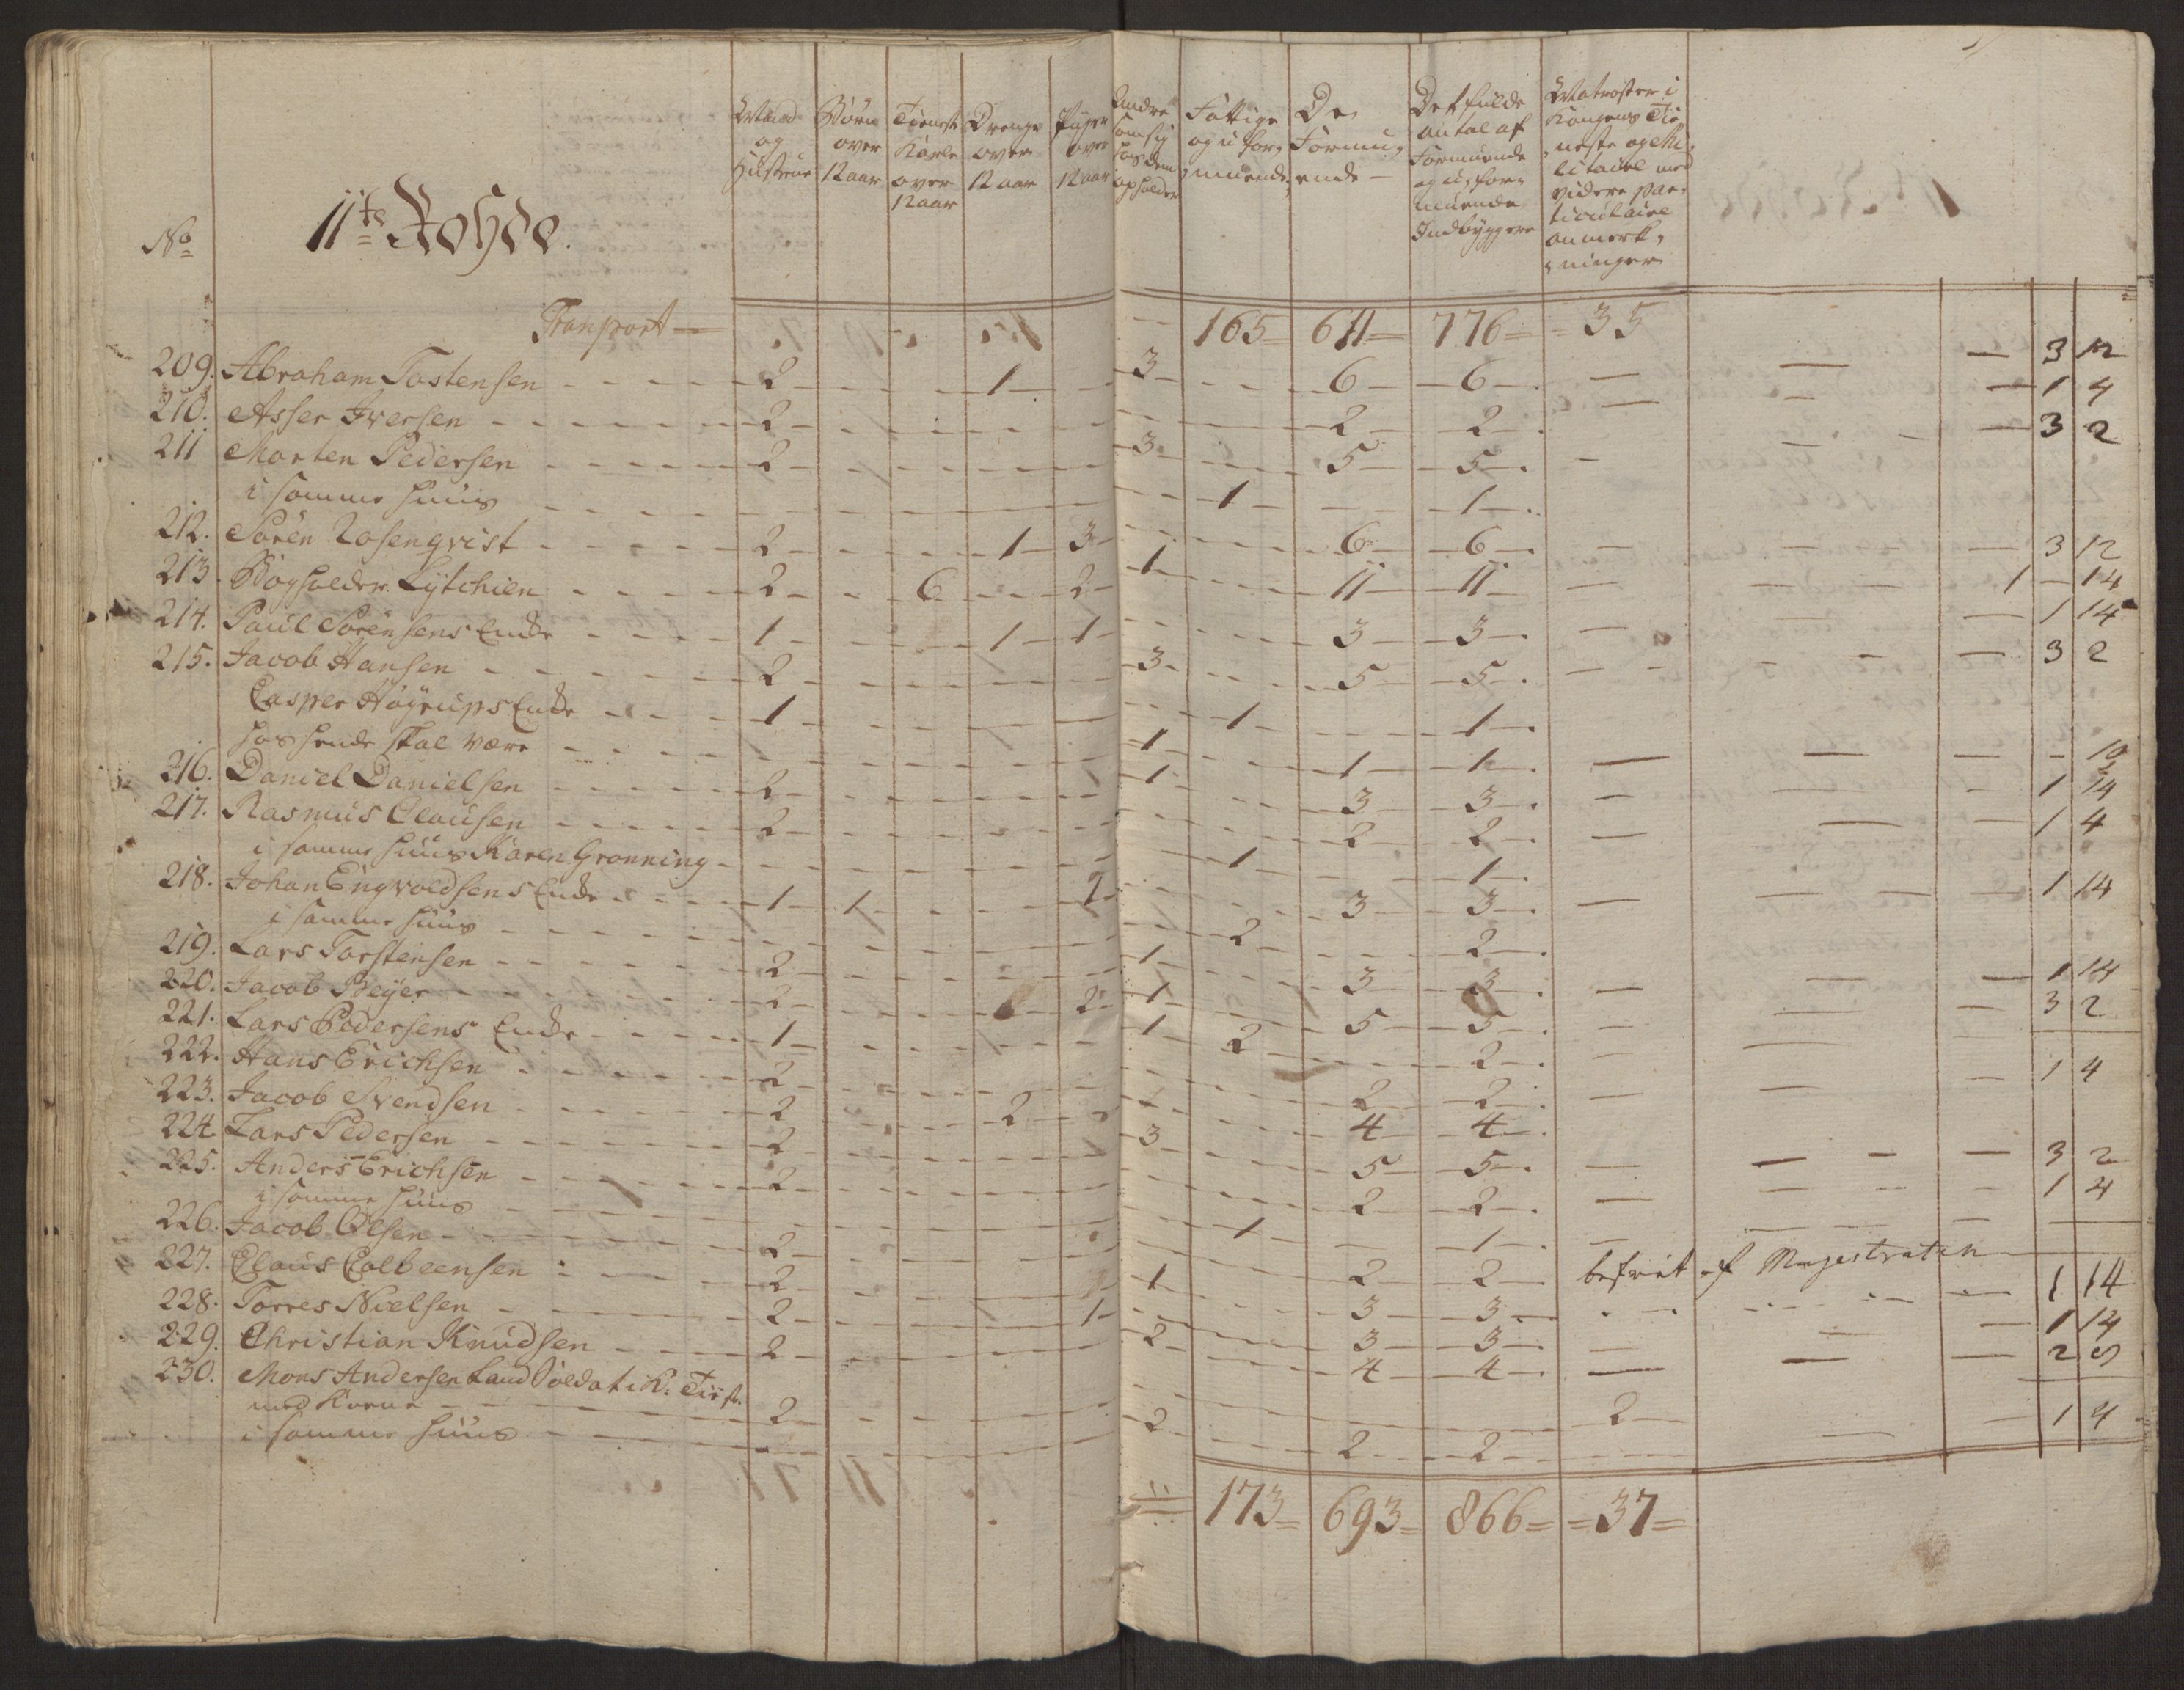 No
11te Rohde.
Mand og Hustrue
Børn over 12 aar
Tieneste Karle over 12 aar
Drenge over 12 aar
Piger over 12 aar
Andre som sig hos dem opholder
Fattige og u for,muende,
De Formu,ende —
Det fulde antal af Formuende og u, formuende Indbyggere
Matroser i Kongens Tie,neste og Mi,litaire med videre par,ticulaire anmerk,ninger
Transport — 165 — 611 — 776 — 35
209. Abraham Tostensen 2 1 3 6 6 — 3 12
210. Asser Iversen 2 2 2 — 1 4
211 Morten Pedersen 2 3 5 5 — 3 2
i samme huus 1 1
212. Sören Rosenqvist 2 1 3 6 6 — 3 12
213. Bogholder Lÿtchien 2 6 2 1 11 11 — 1 — 14
214. Paul Sörensens Enke 1 1 1 3 3 — 1 14
215. Jacob Hansen 2 3 5 5 — 3 2
Casper Höyrups Enke 1 1 1
hos hende skal være 1 1 1 — 10
216. Daniel Danielsen 2 1 3 3 — 1 14
217. Rasmus Clausen 2 2 2 — 1 4
i samme huus Karen Gronning 1 1
218. Johan Engvoldsens Enke 1 1 1 3 3 — 1 14
i samme huus 2 2
219. Lars Torstensen 2 1 3 3 — 1 14
220. Jacob Beÿer 2 2 1 5 5 — 3 2
221. Lars Pedersens Enke 1 1 2 2 —
222. Hans Erichsen 2 2 2 — 1 4
223. Jacob Svendsen 2 2 4 4
224 Lars Pedersen 2 3 5 5 — 3 2
225. Anders Erichsen 2 2 2 — 1 4
i samme huus 1 1 —
226. Jacob Olsen 2 2 2 befriet af Magistraten
227. Claus Colbeensen 2 1 3 3 — 1 14
228. Torres Nielsen 2 1 3 3 — 1 14
229. Christian Knudsen 2 2 4 4 — 2 8
230. Mons Andersen Land Soldat i K: Tiist.
med Kone 2 2
i samme huus 2 2 2 — 1 4
173 — 693 — 866 — 37